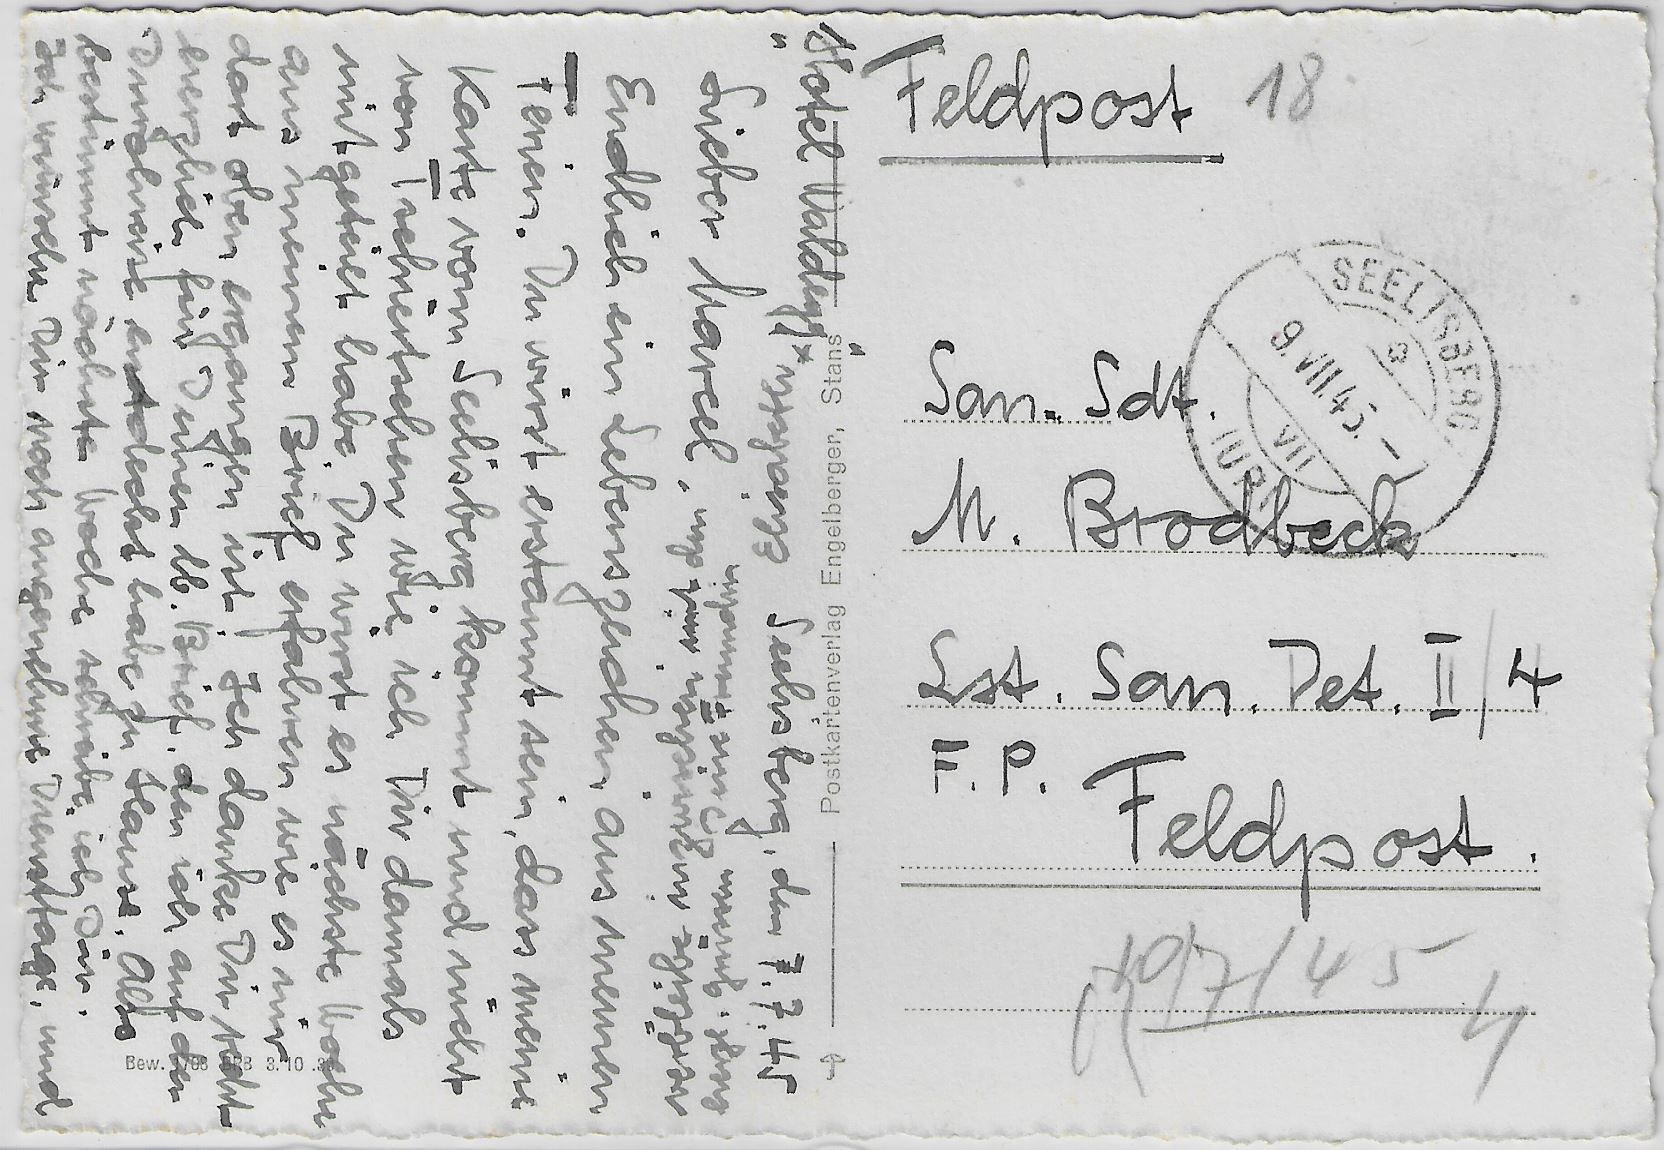 "Hotel Waldegg"
Seelisberg, den 7.7.45
Lieber Marcel,
Endlich ein Lebenszeichen aus meinen
Ferien. Du wirst erstaunt sein, dass meine
Karte vom Seelisberg kommt und nicht
von Tschiertschen wie ich Dir damals
mitgeteilt habe. Du wirst es nächste Woche
aus meinem Brief erfahren wie es mir
dort oben ergangen ist. Ich danke Dir recht
herzlich für Deinen lb. Brief, den ich auf der
Durchreise entdeckt habe zu Hause. Also
bestimmt nächste Woche schreibe ich Dir.
Ich wünsche Dir noch angenehme Diensttage, und
verbleibe mit herzlichen Grüssen
Postkartenverlag Engelberger, Stans
Bew. 1798 BRB 3.10.39
Feldpost 18
SEELISBERG
(URI)
9.VIII.45.–7
VII
a
San. Sdt.
M. Brodbeck
Lst. San. Det. II/4
F.P. Feldpost.